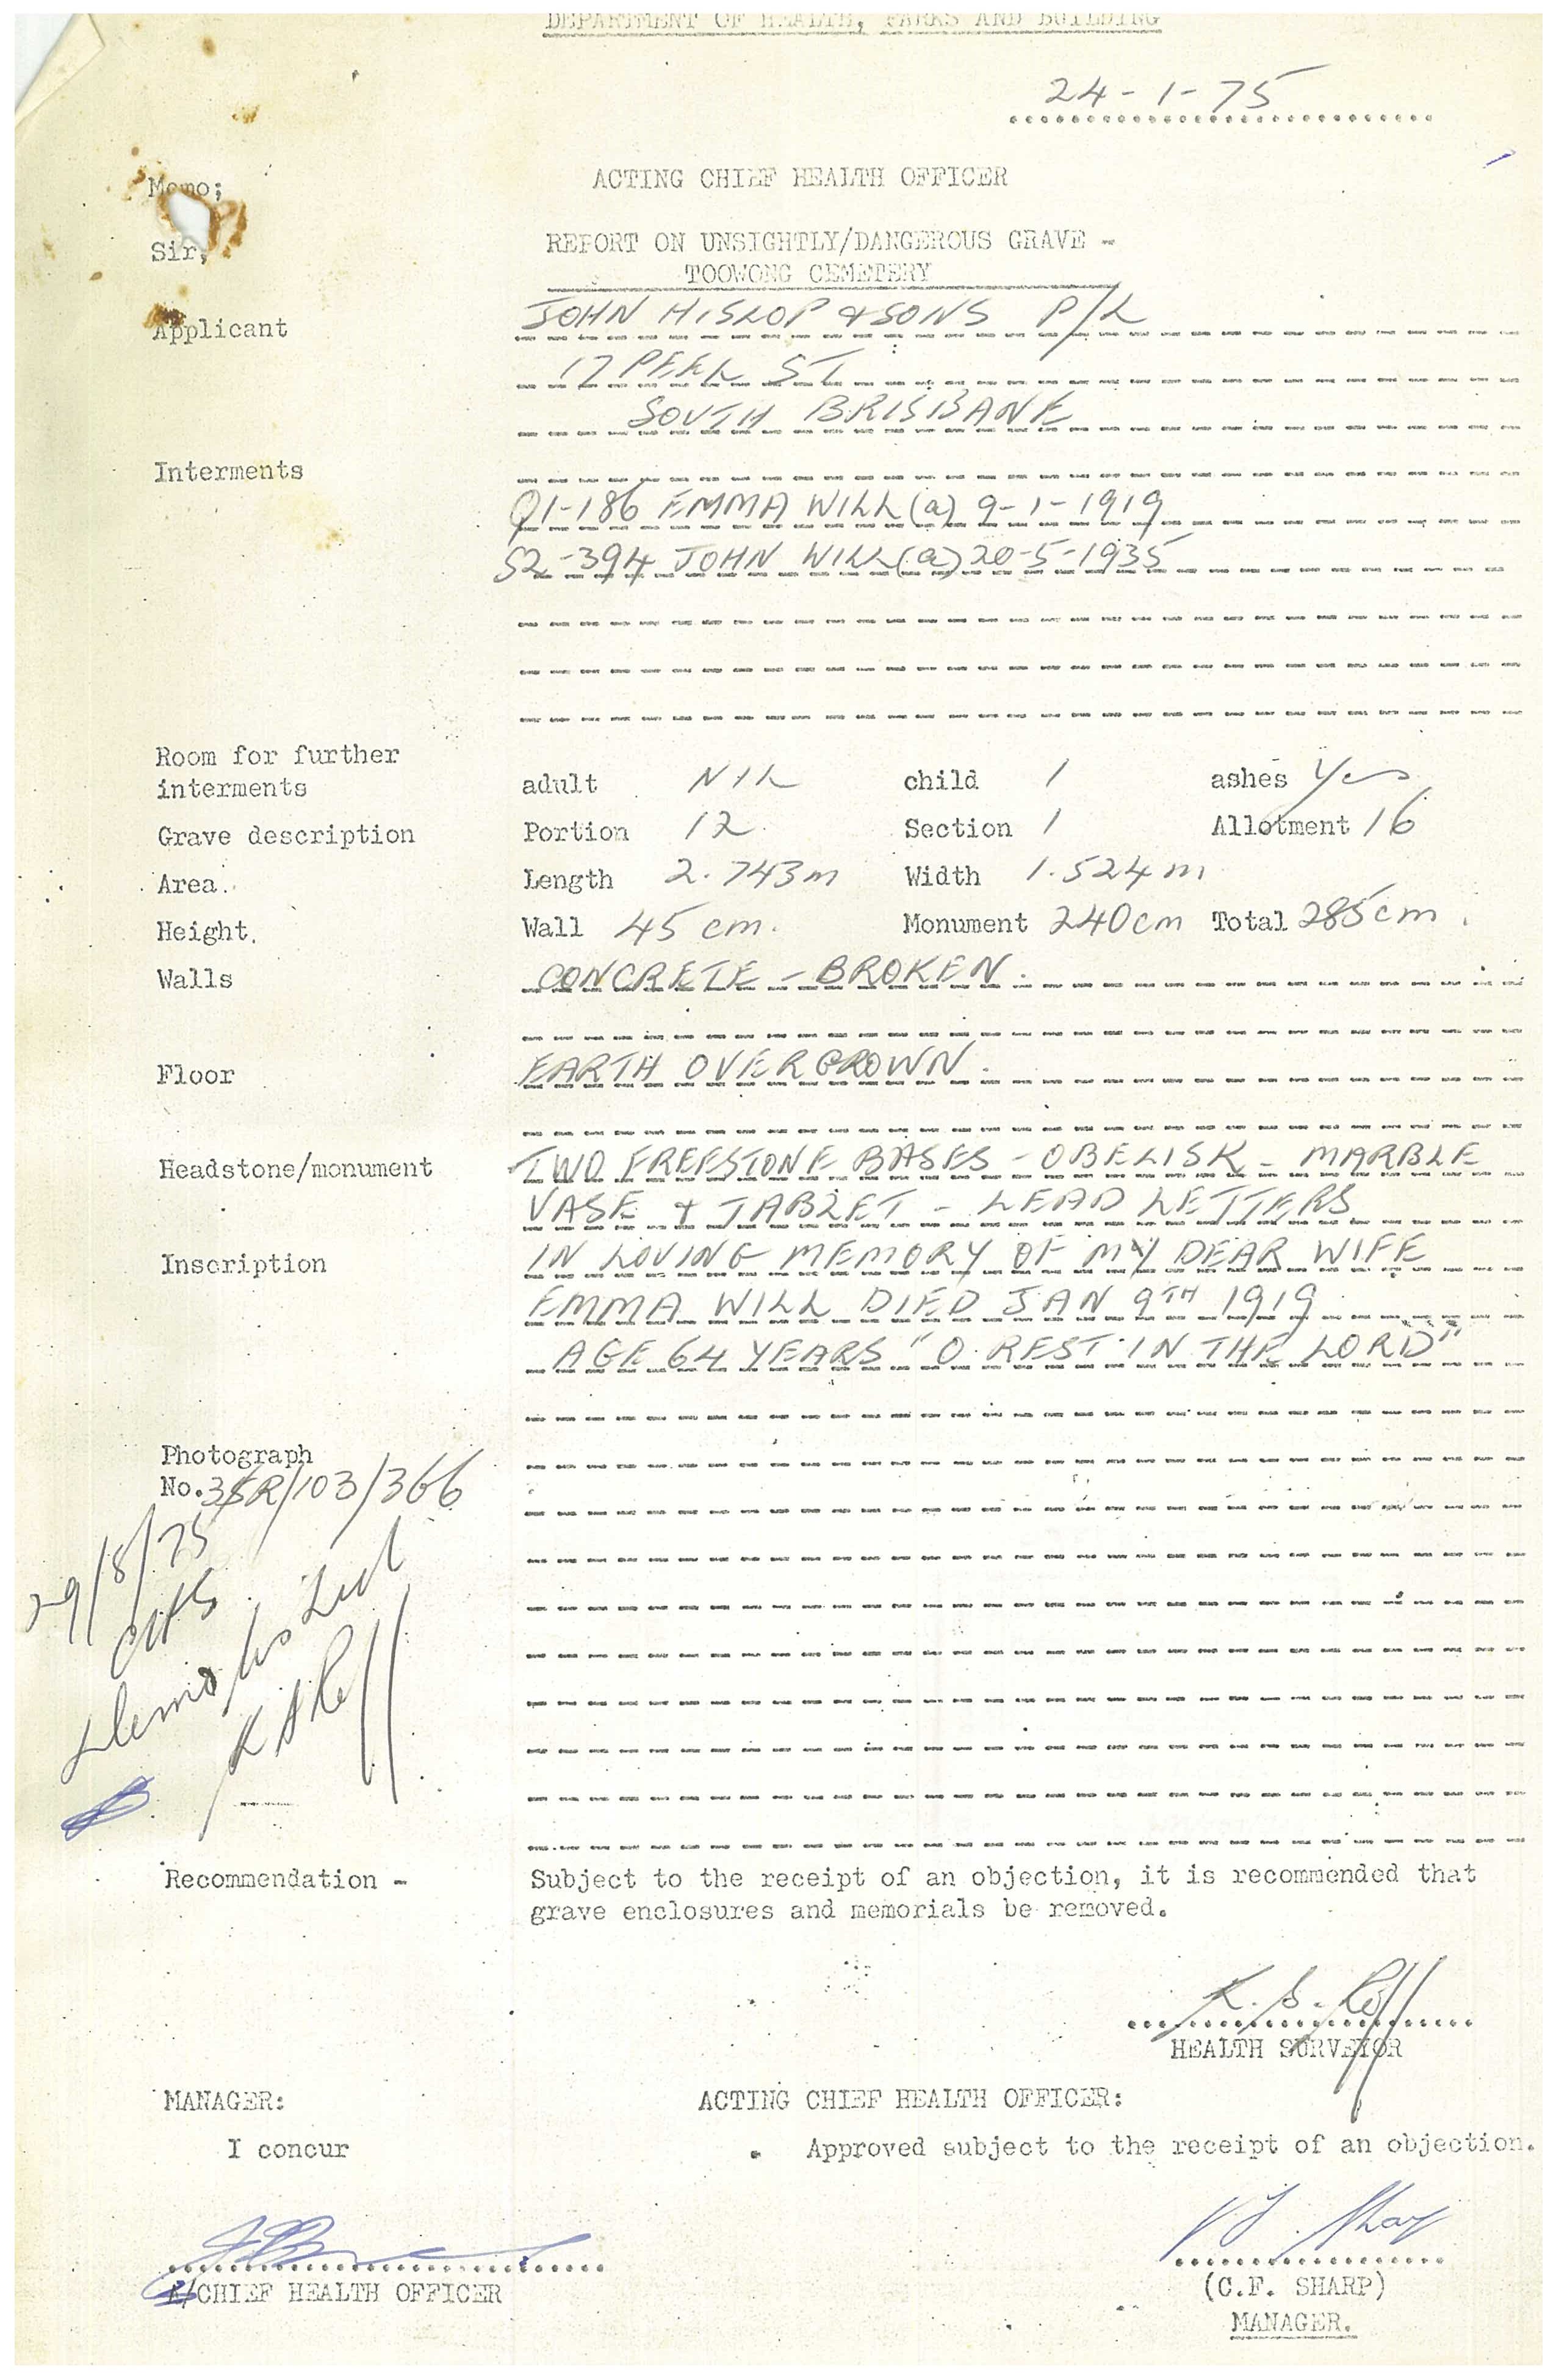 DEPARTMENT OF HEALTH, PARKS AND BUILDING
24-1-75
Memo;
ACTING CHIEF HEALTH OFFICER
Sir,
REPORT ON UNSIGHTLY/DANGEROUS GRAVE -
TOOWONG CEMETERY
Applicant JOHN HISLOP & SONS P/L
17 PEEL ST
SOUTH BRISBANE
Interments
Q1-186 EMMA WILL (a) 9-1-1919
S2-394 JOHN WILL (a) 20-5-1935
Room for further
interments adult NIL child 1 ashes Yes
Grave description Portion 12. Section 1 Allotment 16
Area. Length 2.743m Width 1.524m
Height. Wall 45 cm. Monument 240cm Total 285cm.
Walls CONCRETE - BROKEN.
Floor EARTH OVERGROWN.
Headstone/monument TWO FREESTONE BASES - OBELISK - MARBLE
VASE & TABLET - LEAD LETTERS
Inscription IN LOVING MEMORY OF MY DEAR WIFE
EMMA WILL DIED JAN 9TH 1919
AGE 64 YEARS "O. REST IN THE LORD"
Photograph
No. /103/366
29/8/75
Recommendation - Subject to the receipt of an objection, it is recommended that
grave enclosures and memorials be removed.
HEALTH SURVEYOR
MANAGER: ACTING CHIEF HEALTH OFFICER:
I concur Approved subject to the receipt of an objection.
A/CHIEF HEALTH OFFICER
(C.F. SHARP)
MANAGER.